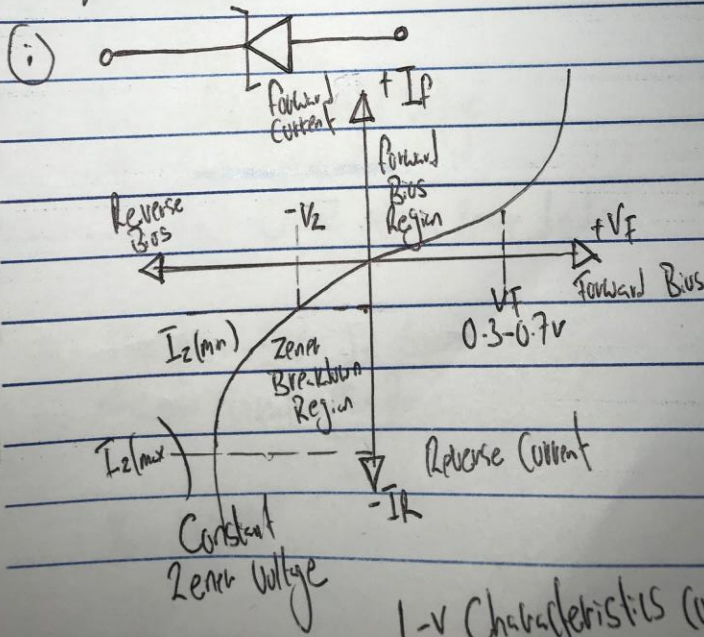 i
Forward
Current
+ If
Forward
Bias
Region
Reverse
Bias
-Vz
+VF
Forward Bias
VF
0.3-0.7v
Iz(min)
Zener
Breakdown
Region
Iz(max)
Reverse Current
-IR
Constant
Zener Voltage
I-V Characteristics